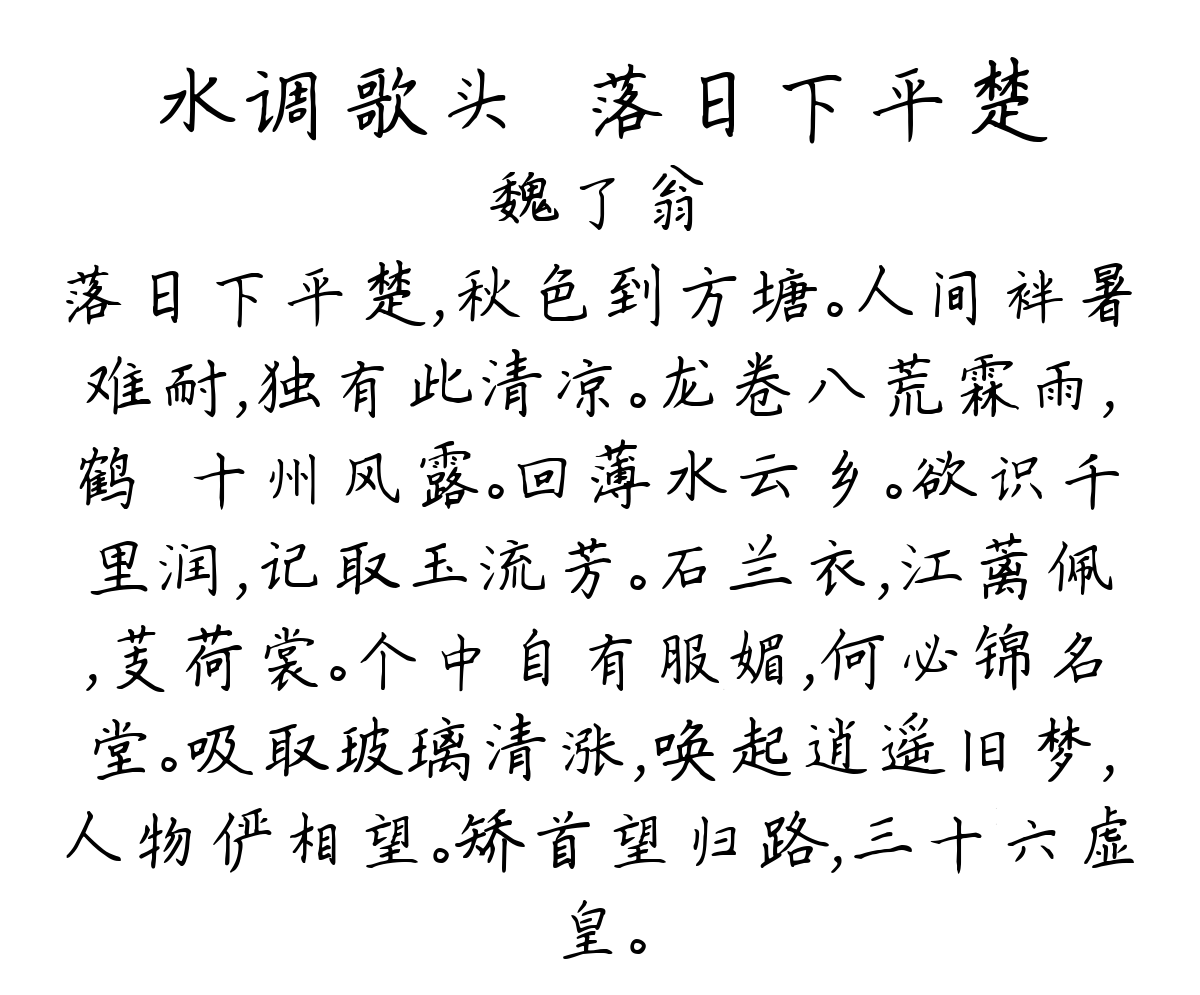 水调歌头 落日下平楚
魏了翁
落日下平楚,秋色到方塘。人间袢暑
难耐,独有此清凉。龙卷八荒霖雨,
鹤 十州风露。回薄水云乡。欲识千
里润,记取玉流芳。石兰衣,江蓠佩
,芰荷裳。个中自有服媚,何必锦名
堂。吸取玻璃清涨,唤起逍遥旧梦,
人物俨相望。矫首望归路,三十六虚
皇。